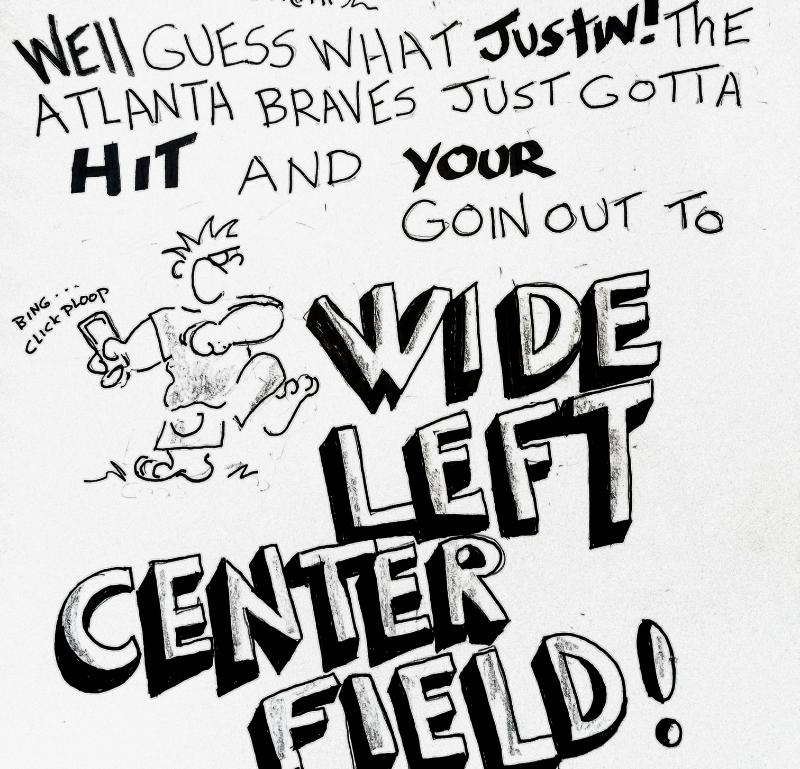 WEll GUESS WHAT JUSTIN! ThE
ATLANTA BRAVES JUST GOTTA
HIT AND YOUR
GOIN OUT TO
BING...
CLICK PLOOP
WIDE
LEFT
CENTER
FIELD!